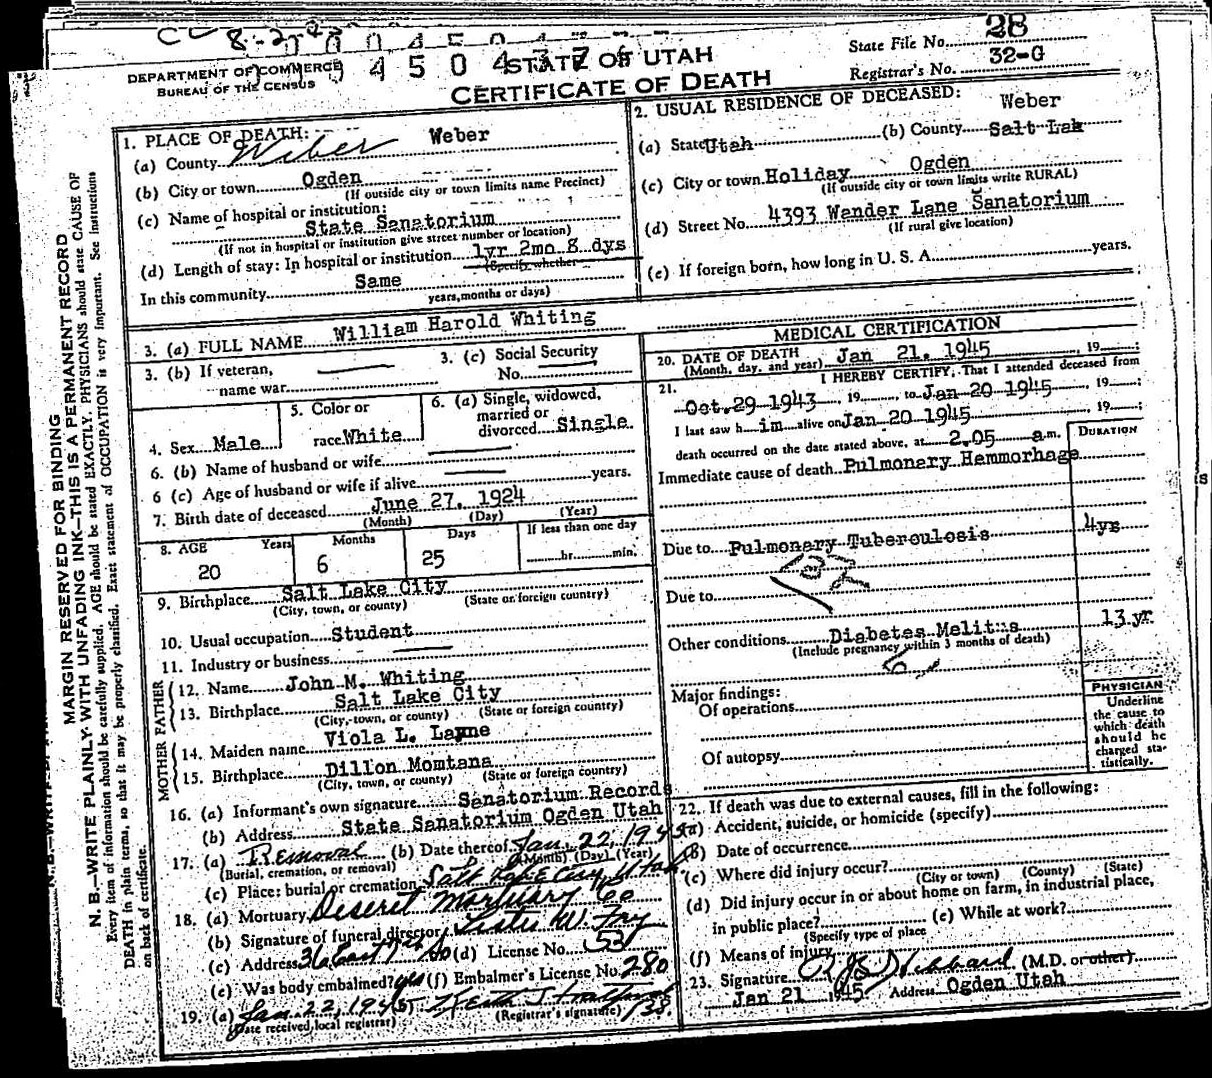 8-2-
DEPARTMENT OF COMMERCE
BUREAU OF THE CENSUS
STATE OF UTAH
CERTIFICATE OF DEATH
State File No. 28
Registrar's No. 32-G
MARGIN RESERVED FOR BINDING
N. B.—WRITE PLAINLY WITH UNFADING INK—THIS IS A PERMANENT RECORD
Every item of information should be carefully supplied. AGE should be stated EXACTLY. PHYSICIANS should state CAUSE OF
DEATH in plain terms, so that it may be properly classified. Exact statement of OCCUPATION is very important. See instructions
on back of certificate.
1. PLACE OF DEATH: Weber
(a) County Weber
(b) City or town Ogden
(If outside city or town limits name Precinct)
(c) Name of hospital or institution:
State Sanatorium
(If not in hospital or institution give street number or location)
(d) Length of stay: In hospital or institution 1yr 2mo 8 dys
(Specify whether
In this community Same
years, months or days)
2. USUAL RESIDENCE OF DECEASED: Weber
(a) State Utah (b) County Salt Lak
(c) City or town Holiday Ogden
(If outside city or town limits write RURAL)
(d) Street No. 4393 Wander Lane Sanatorium
(If rural give location)
(e) If foreign born, how long in U. S. A. years.
3. (a) FULL NAME William Harold Whiting
3. (b) If veteran,
name war
3. (c) Social Security
No.
4. Sex Male
5. Color or
race White
6. (a) Single, widowed,
married or
divorced Single
6. (b) Name of husband or wife
6 (c) Age of husband or wife if alive years.
7. Birth date of deceased June 27, 1924
(Month) (Day) (Year)
8. AGE Years Months Days If less than one day
20 6 25 hr. min.
9. Birthplace Salt Lake City
(City, town, or county) (State or foreign country)
10. Usual occupation Student
11. Industry or business
FATHER
12. Name John M. Whiting
13. Birthplace Salt Lake City
(City, town, or county) (State or foreign country)
MOTHER
14. Maiden name Viola L. Layne
15. Birthplace Dillon Momtana
(City, town, or county) (State or foreign country)
16. (a) Informant's own signature Sanatorium Records
(b) Address State Sanatorium Ogden Utah
17. (a) Removal (b) Date thereof Jan. 22, 1945
(Burial, cremation, or removal) (Month) (Day) (Year)
(c) Place: burial or cremation Salt Lake City, Utah
18. (a) Mortuary Deseret Mortuary Co
(b) Signature of funeral director
(c) Address 36 East 7th So (d) License No. 53
(e) Was body embalmed? yes (f) Embalmer's License No. 280
19. (a) Jan. 22, 1945
(Date received local registrar) (Registrar's signature)
MEDICAL CERTIFICATION
20. DATE OF DEATH
(Month, day, and year) Jan 21, 1945, 19
21. I HEREBY CERTIFY, That I attended deceased from
Oct. 29 1943, 19, to Jan 20 1945, 19;
I last saw h im alive on Jan 20 1945, 19;
death occurred on the date stated above, at 2.05 a m.
DURATION
Immediate cause of death Pulmonary Hemmorhage
Due to Pulmonary Tuberculosis 4yr
Due to
Other conditions Diabetes Melitus 13 yr
(Include pregnancy within 3 months of death)
Major findings:
Of operations
Of autopsy
PHYSICIAN
Underline
the cause to
which death
should be
charged sta-
tistically.
22. If death was due to external causes, fill in the following:
(a) Accident, suicide, or homicide (specify)
(b) Date of occurrence
(c) Where did injury occur?
(City or town) (County) (State)
(d) Did injury occur in or about home on farm, in industrial place,
in public place? (e) While at work?
(Specify type of place
(f) Means of injury
23. Signature Hibbard (M.D. or other)
Jan 21 1945 Address Ogden Utah